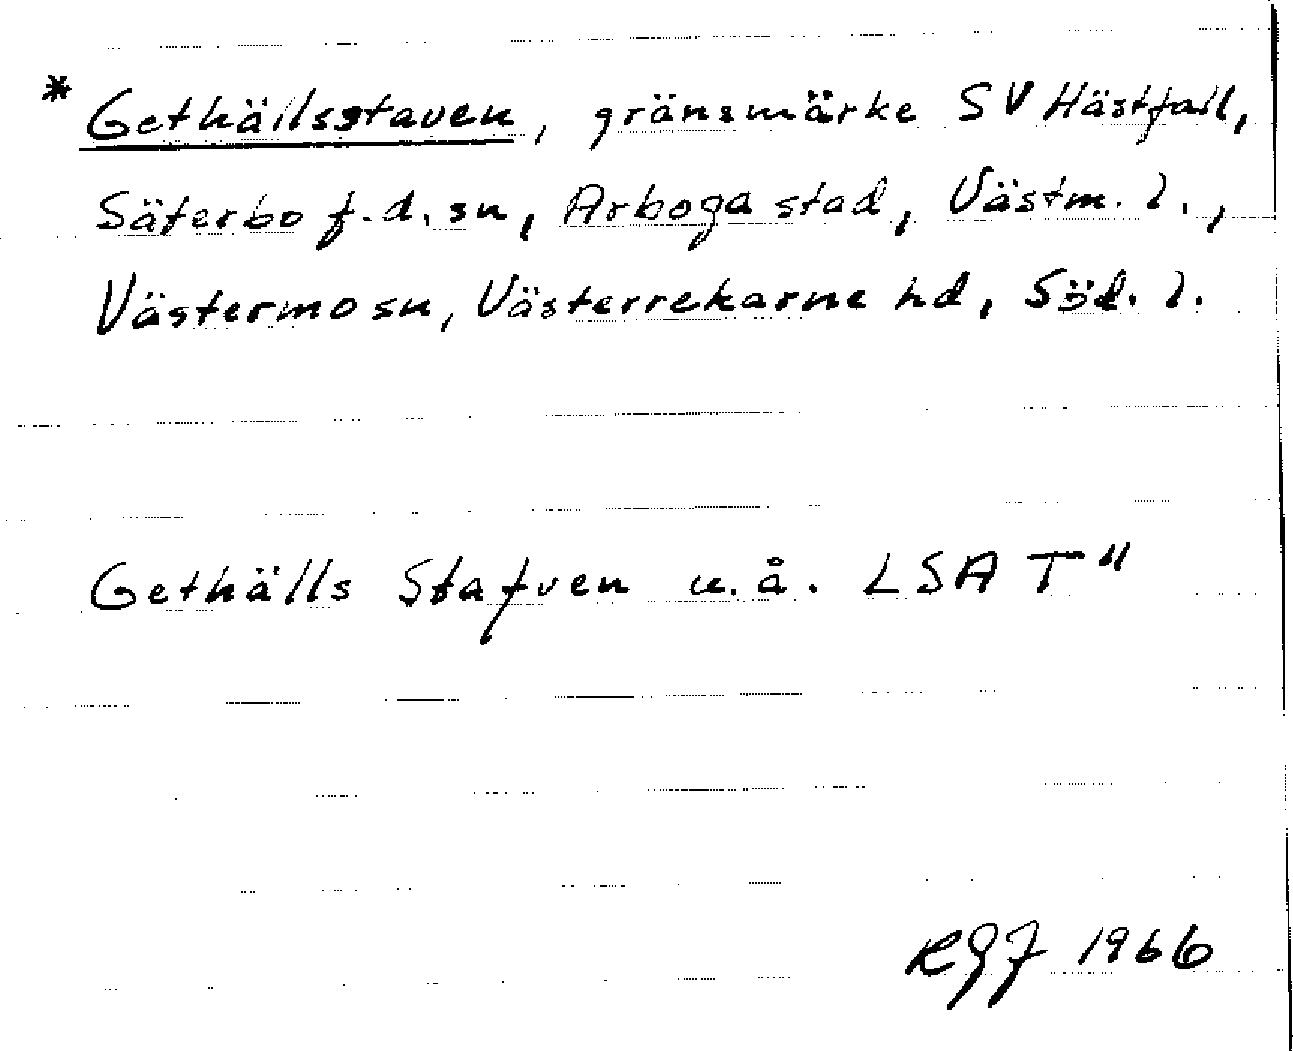 * Gethällsstaven, gränsmärke SV Hästfall,
Säterbo f.d. sn, Arboga stad, Västm. l.,
Västermo sn, Västerrekarne hd, Söd. l.
Gethälls Stafven u.å. LSA T"
RGJ 1966